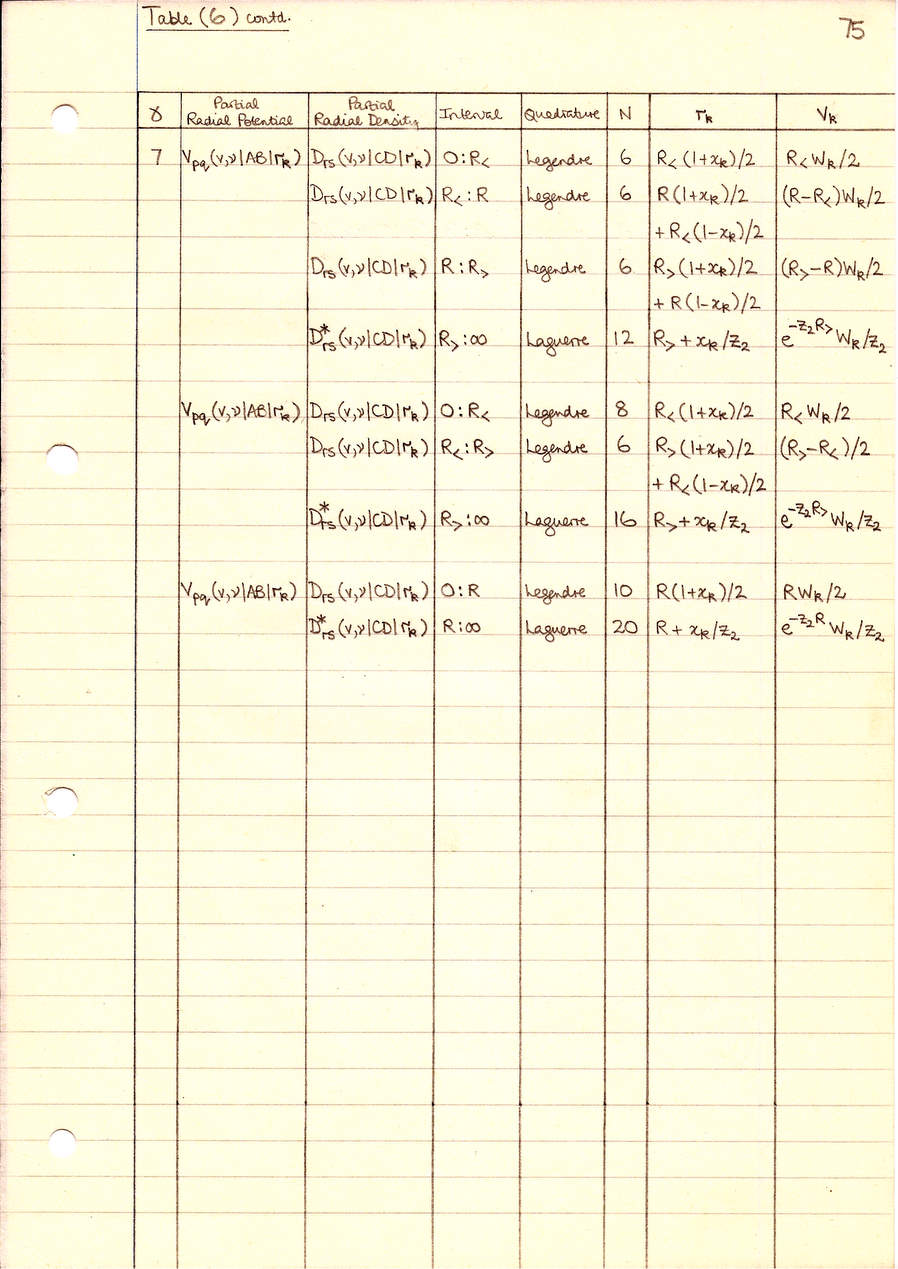 Table (6) contd.
75
γ | Partial Radial Potential | Partial Radial Density | Interval | Quadrature | N | r_k | V_k
7 | V_pq(v,ν|AB|r_k) | D_rs(v,ν|CD|r_k) | 0:R< | Legendre | 6 | R<(1+x_k)/2 | R<W_k/2
D_rs(v,ν|CD|r_k) | R<:R | Legendre | 6 | R(1+x_k)/2 | (R-R<)W_k/2
+R<(1-x_k)/2
D_rs(v,ν|CD|r_k) | R:R> | Legendre | 6 | R>(1+x_k)/2 | (R>-R)W_k/2
+R(1-x_k)/2
D*_rs(v,ν|CD|r_k) | R>:∞ | Laguerre | 12 | R>+x_k/Z_2 | e^-Z_2R> W_k/Z_2
V_pq(v,ν|AB|r_k) | D_rs(v,ν|CD|r_k) | 0:R< | Legendre | 8 | R<(1+x_k)/2 | R<W_k/2
D_rs(v,ν|CD|r_k) | R<:R> | Legendre | 6 | R>(1+x_k)/2 | (R>-R<)/2
+R<(1-x_k)/2
D*_rs(v,ν|CD|r_k) | R>:∞ | Laguerre | 16 | R>+x_k/Z_2 | e^-Z_2R> W_k/Z_2
V_pq(v,ν|AB|r_k) | D_rs(v,ν|CD|r_k) | 0:R | Legendre | 10 | R(1+x_k)/2 | RW_k/2
D*_rs(v,ν|CD|r_k) | R:∞ | Laguerre | 20 | R+x_k/Z_2 | e^-Z_2R W_k/Z_2